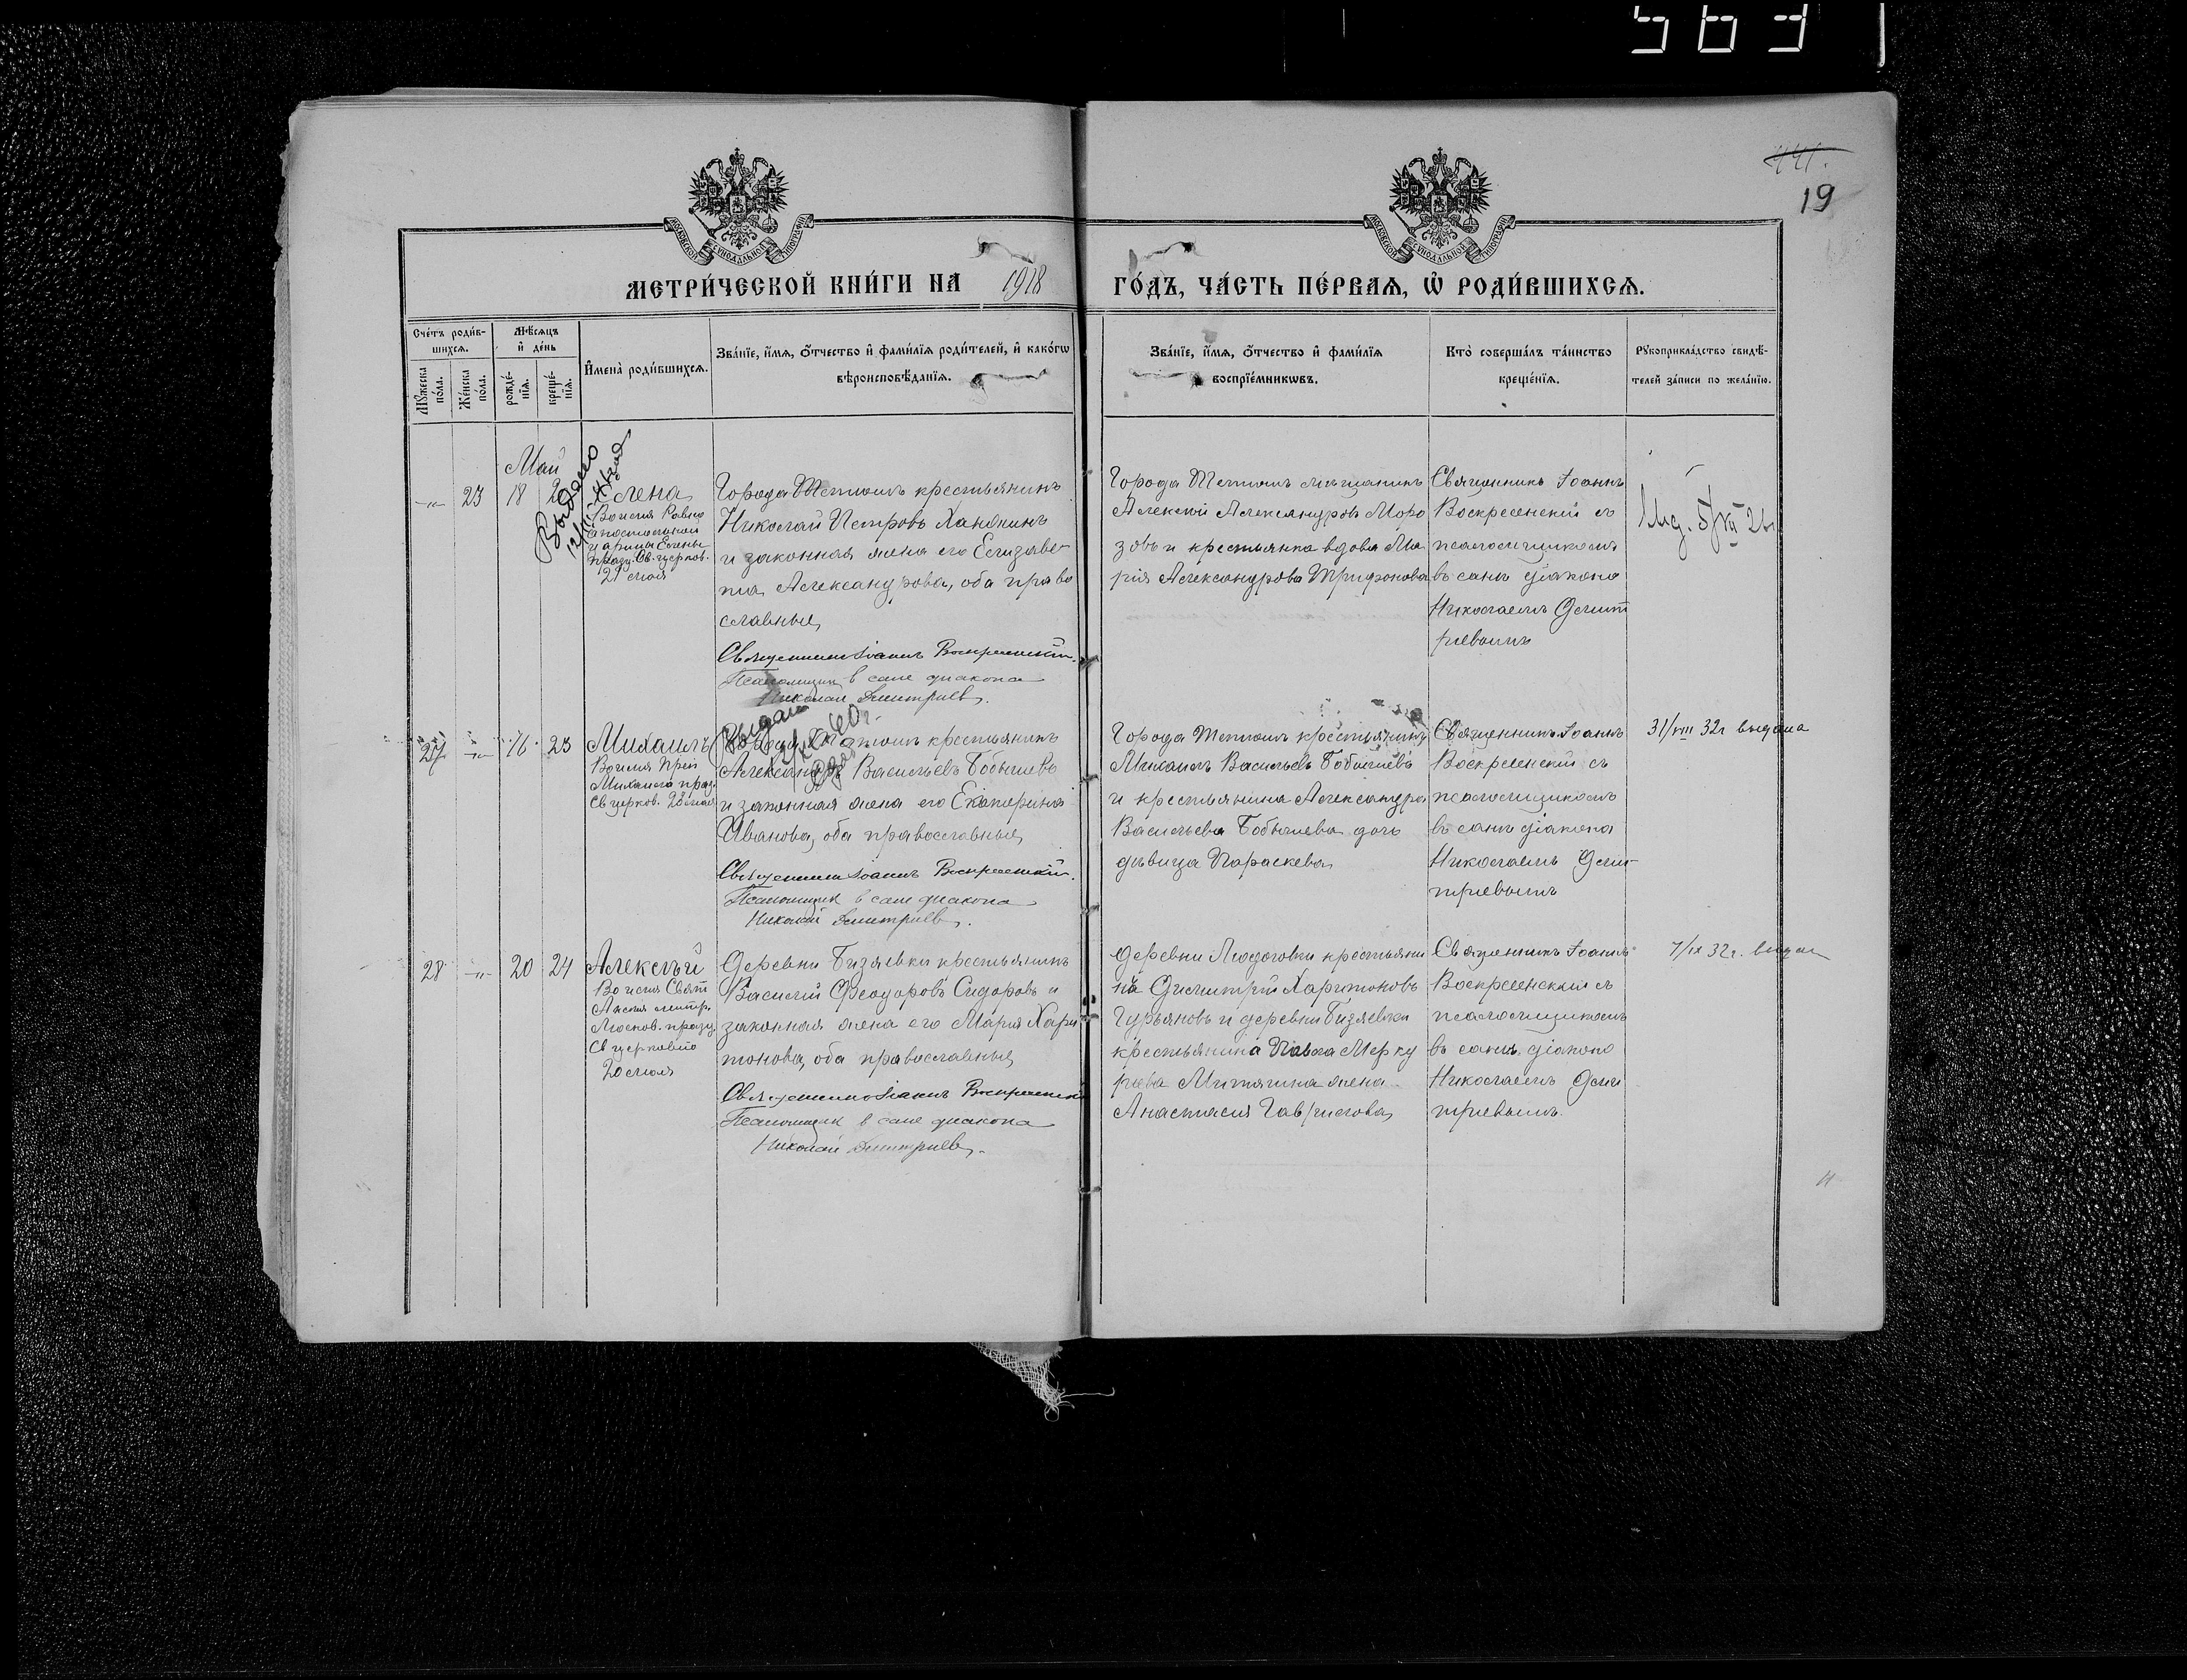 563
441.
19
МОСКОВСКОЙ СѴНОДАЛЬНОЙ ТИПОГРАФІИ
МОСКОВСКОЙ СѴНОДАЛЬНОЙ ТИПОГРАФІИ
МЕТРИ́ЧЕСКОЙ КНИ́ГИ НА 1918 ГО́ДЪ, ЧА́СТЬ ПЕ́РВАѦ, Ѡ҆ РОДИ́ВШИХСѦ.
Сче́тъ роди́в-
шихсѧ.
Мꙋ́жеска по́ла.
Же́нска по́ла.
Мѣ́сѧцъ
и҆ де́нь
рожде́-
нїѧ.
креще́-
нїѧ.
И҆мена̀ роди́вшихсѧ.
Зва́нїе, и҆́мѧ, ѻ҆́тчество и҆ фами́лїѧ роди́телей, и҆ како́гѡ
вѣроисповѣ́данїѧ.
Зва́нїе, и҆́мѧ, ѻ҆́тчество и҆ фами́лїѧ
воспрїе́мникѡвъ.
Кто̀ соверша́лъ та́инство
креще́нїѧ.
Рꙋкоприкла́дство свидѣ́-
телей за́писи по жела́нїю.
Май
-„- 23 18
Выдано
Елена
Во имя Равно
апостольной
царицы Елены
празд. Св. церков.
21 мая
Города Тетюшъ крестьянинъ
Николай Петровъ Ханонинъ
и законная жена его Елизаве-
та Александрова, оба право
славные
Священникъ Іоаннъ Воскресенскій.
Псаломщик в сане диакона
Николай Димитриев.
Города Тетюшъ мѣщанинъ
Алексѣй Александровъ Моро
зовъ и крестьянка вдова Ма
рія Александрова Трифонова
Священникъ Іоаннъ
Воскресенскій съ
псаломщикомъ
въ санѣ діакона
Николаемъ Димит
ріевымъ
27 -„- 16 23
Михаилъ
Во имя Преп
Михаила праз.
Св церков. 23 мая
Выдан
Города Тетюшъ крестьянинъ
Александръ Васильевъ Бобышевъ
и законная жена его Екатерина
Иванова, оба православные
Священникъ Іоаннъ Воскресенскій.
Псаломщик в сане диакона
Николай Димитриев.
Города Тетюшъ крестьянинъ
Михаилъ Васильевъ Бобышевъ
и крестьянина Александра
Васильева Бобышева дочь
дѣвица Параскева
Священникъ Іоаннъ
Воскресенскій съ
псаломщикомъ
въ санѣ діакона
Николаемъ Дим-
тріевымъ
31/VIII 32г выдана
28 -„- 20 24
Алексѣй
Во имя Свят
Алексія митр.
Москов. празд.
Св церковію
20 мая
Деревни Бизяевки крестьянинъ
Василій Ѳеодоровъ Сидоровъ и
законная жена его Марія Хари
тонова, оба православные
Священникъ Іоаннъ Воскресенскій
Псаломщик в сане диакона
Николай Димитриев.
Деревни Людоговки крестьяни
нъ Димитрій Харитоновъ
Гурьяновъ и деревни Бизяевки
крестьянина Павла Мерку
рьева Митягина жена
Анастасія Гаврилова
Священникъ Іоаннъ
Воскресенскій съ
псаломщикомъ
въ санѣ діакона
Николаемъ Дими
тріевымъ.
7/IX 32г. выдан